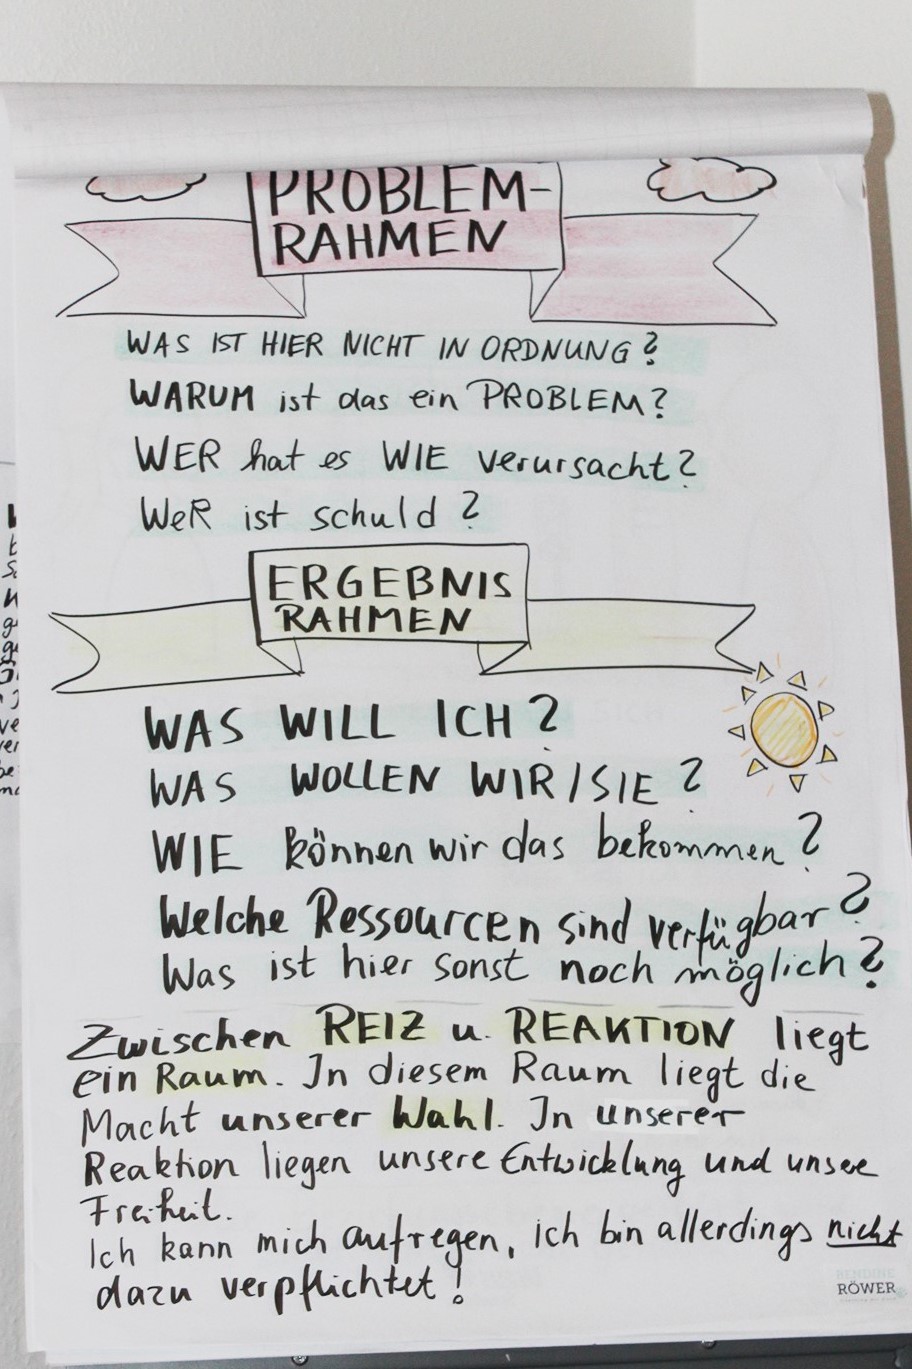 PROBLEM-
RAHMEN
WAS IST HIER NICHT IN ORDNUNG?
WARUM ist das ein PROBLEM?
WER hat es WIE verursacht?
WeR ist schuld?
ERGEBNIS
RAHMEN
WAS WILL ICH?
WAS WOLLEN WIR/SIE?
WIE können wir das bekommen?
Welche Ressourcen sind verfügbar?
Was ist hier sonst noch möglich?
Zwischen REIZ u. REAKTION liegt
ein Raum. In diesem Raum liegt die
Macht unserer Wahl. In unserer
Reaktion liegen unsere Entwicklung und unsee
Freiheit.
Ich kann mich aufregen, ich bin allerdings nicht
dazu verpflichtet!
RÖWER